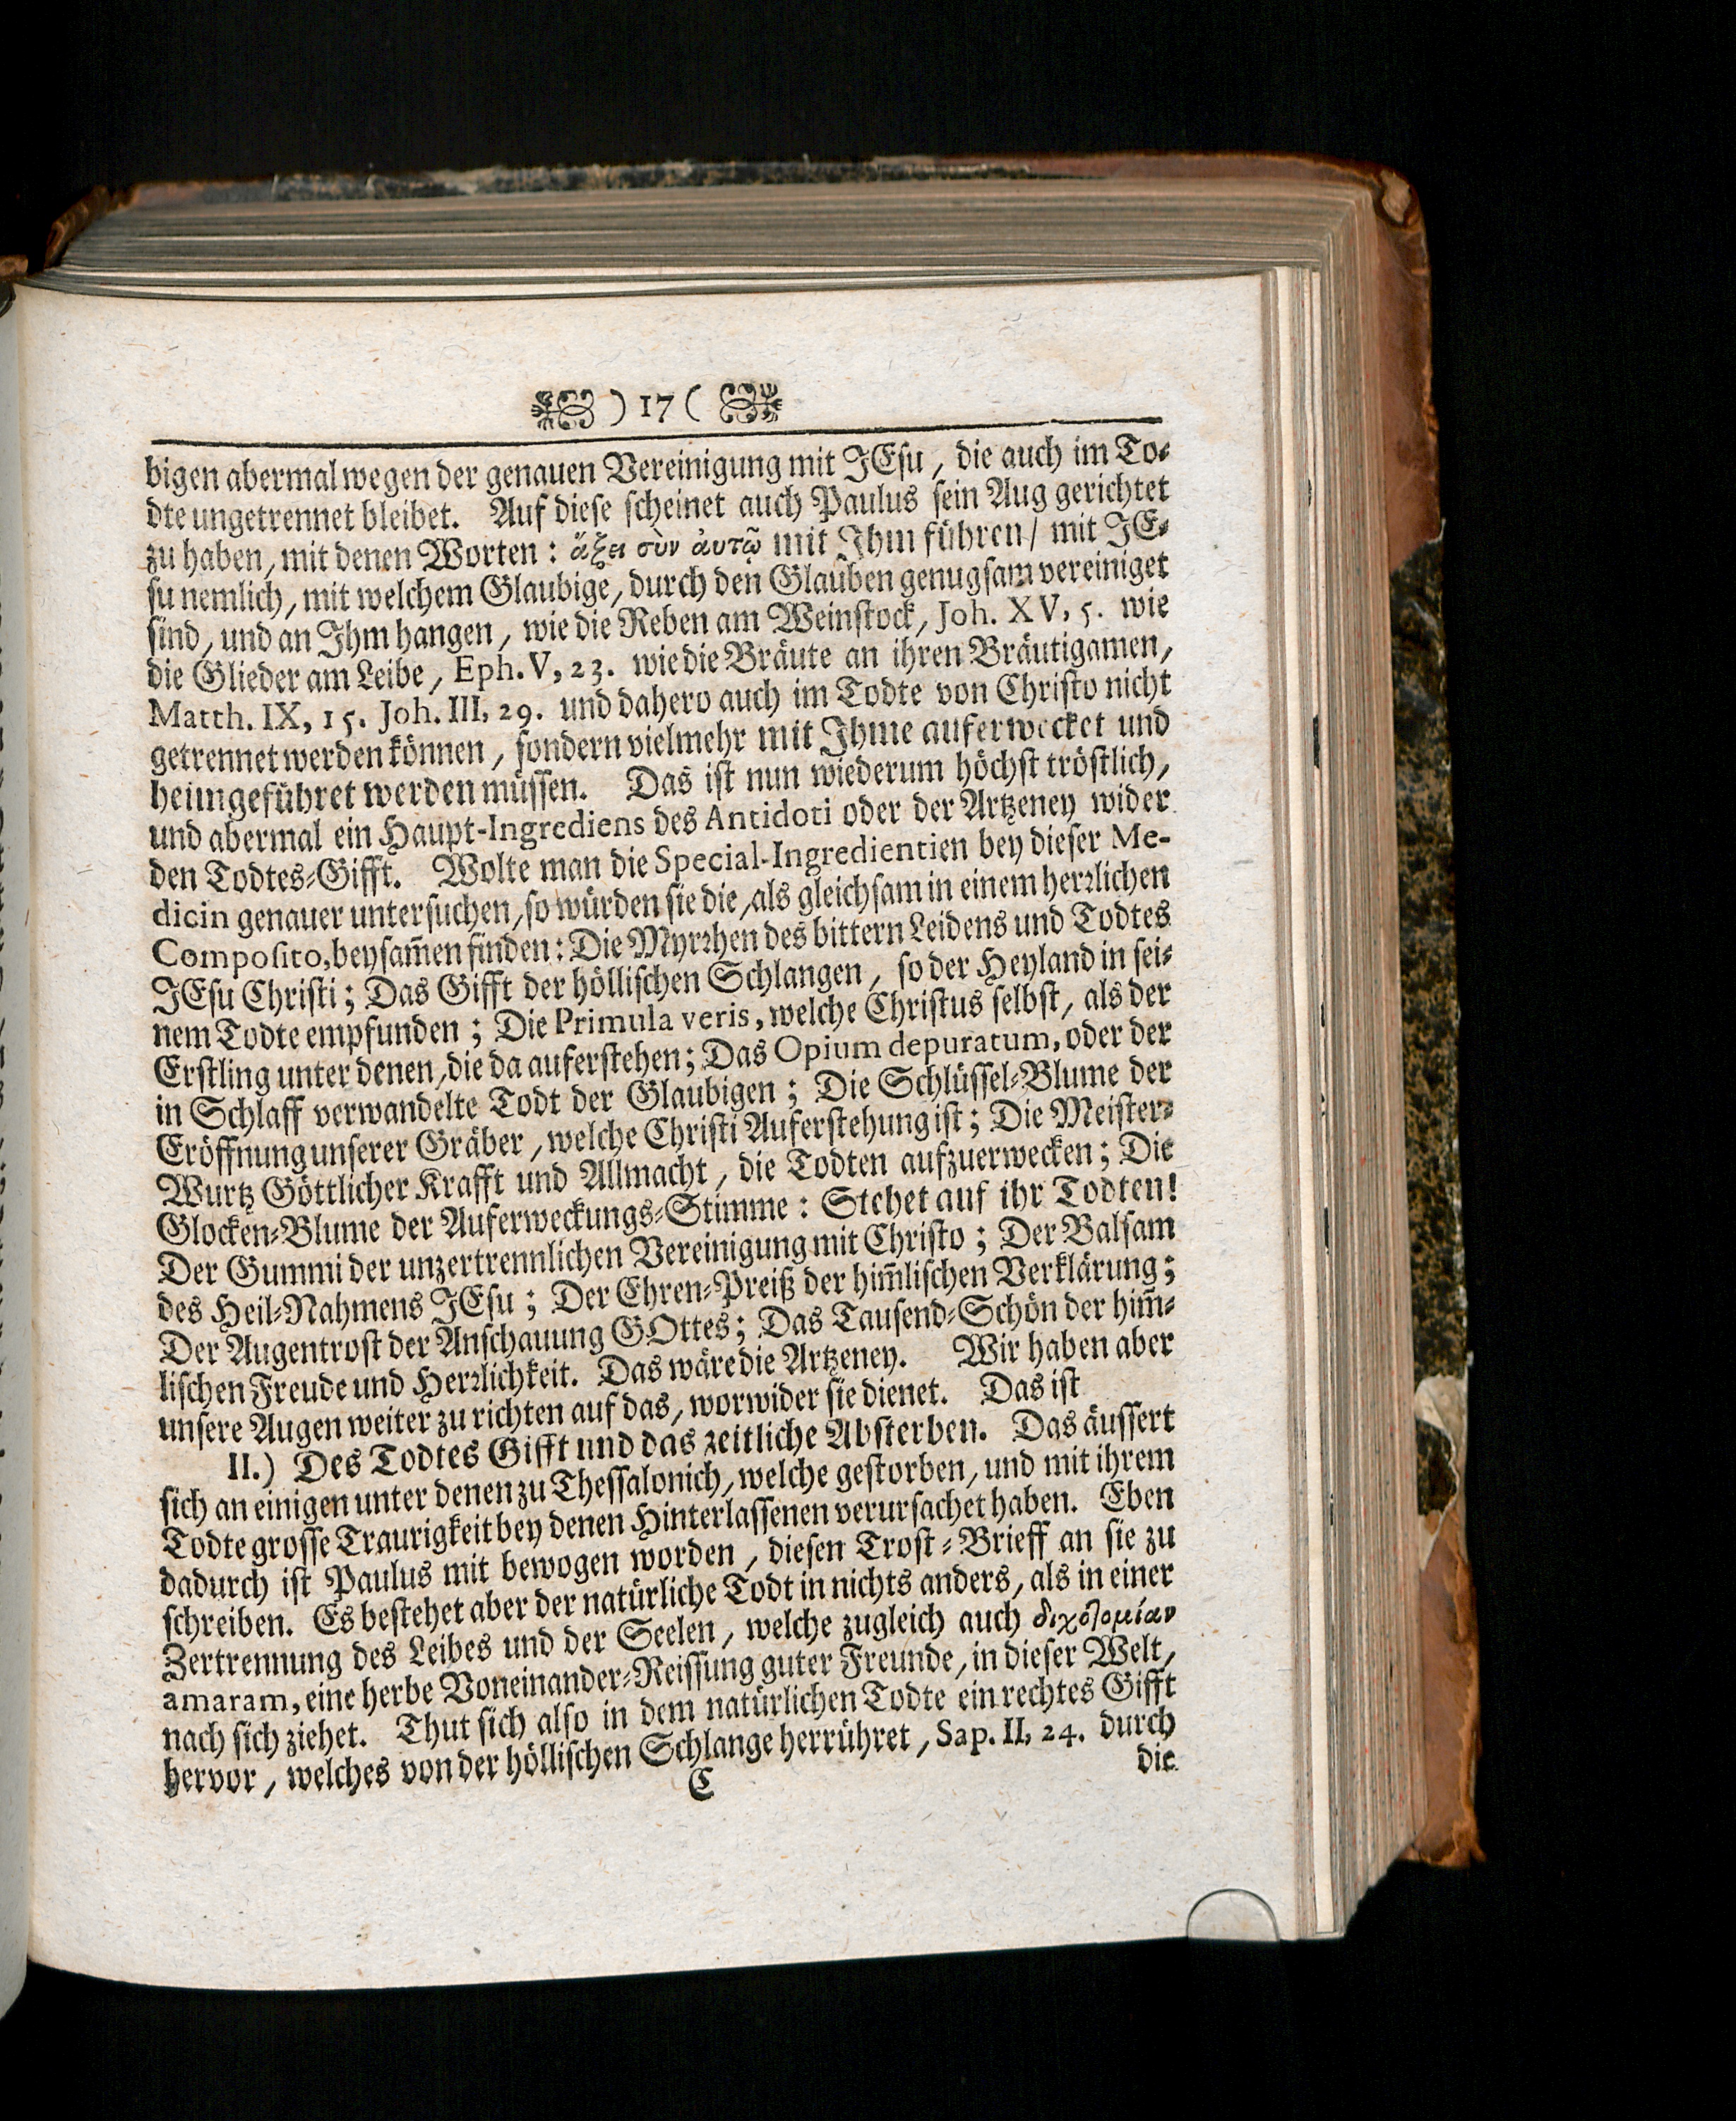 ) 17 (
bigen abermal wegen der genauen Vereinigung mit JEsu, die auch im To-
dte ungetrennet bleibet. Auf diese scheinet auch Paulus sein Aug gerichtet
zu haben, mit denen Worten: ἄξει σὺν ἀυτῷ mit Jhm führen/ mit JE-
su nemlich, mit welchem Glaubige, durch den Glauben genugsam vereiniget
sind, und an Jhm hangen, wie die Reben am Weinstock, Joh. XV, 5. wie
die Glieder am Leibe, Eph. V, 23. wie die Bräute an ihren Bräutigamen,
Matth. IX, 15. Joh. III, 29. und dahero auch im Todte von Christo nicht
getrennet werden können, sondern vielmehr mit Jhme auferwecket und
heimgeführet werden müssen. Das ist nun wiederum höchst tröstlich,
und abermal ein Haupt-Ingrediens des Antidoti oder der Artzeney wider
den Todtes-Gifft. Wolte man die Special-Ingredientien bey dieser Me-
dicin genauer untersuchen, so würden sie die, als gleichsam in einem herrlichen
Composito, beysam̃en finden: Die Myrrhen des bittern Leidens und Todtes
JEsu Christi; Das Gifft der höllischen Schlangen, so der Heyland in sei-
nem Todte empfunden; Die Primula veris, welche Christus selbst, als der
Erstling unter denen, die da auferstehen; Das Opium depuratum, oder der
in Schlaff verwandelte Todt der Glaubigen; Die Schlüssel-Blume der
Eröffnung unserer Gräber, welche Christi Auferstehung ist; Die Meister-
Wurtz Göttlicher Krafft und Allmacht, die Todten aufzuerwecken; Die
Glocken-Blume der Auferweckungs-Stimme: Stehet auf ihr Todten!
Der Gummi der unzertrennlichen Vereinigung mit Christo; Der Balsam
des Heil-Nahmens JEsu; Der Ehren-Preiß der him̃lischen Verklärung;
Der Augentrost der Anschauung GOttes; Das Tausend-Schön der him̃-
lischen Freude und Herrlichkeit. Das wäre die Artzeney. Wir haben aber
unsere Augen weiter zu richten auf das, worwider sie dienet. Das ist
II.) Des Todtes Gifft und das zeitliche Absterben. Das äussert
sich an einigen unter denen zu Thessalonich, welche gestorben, und mit ihrem
Todte grosse Traurigkeit bey denen Hinterlassenen verursachet haben. Eben
dadurch ist Paulus mit bewogen worden, diesen Trost-Brieff an sie zu
schreiben. Es bestehet aber der natürliche Todt in nichts anders, als in einer
Zertrennung des Leibes und der Seelen, welche zugleich auch διχοτομίαν
amaram, eine herbe Voneinander-Reissung guter Freunde, in dieser Welt,
nach sich ziehet. Thut sich also in dem natürlichen Todte ein rechtes Gifft
hervor, welches von der höllischen Schlange herrühret, Sap. II, 24. durch
C
die